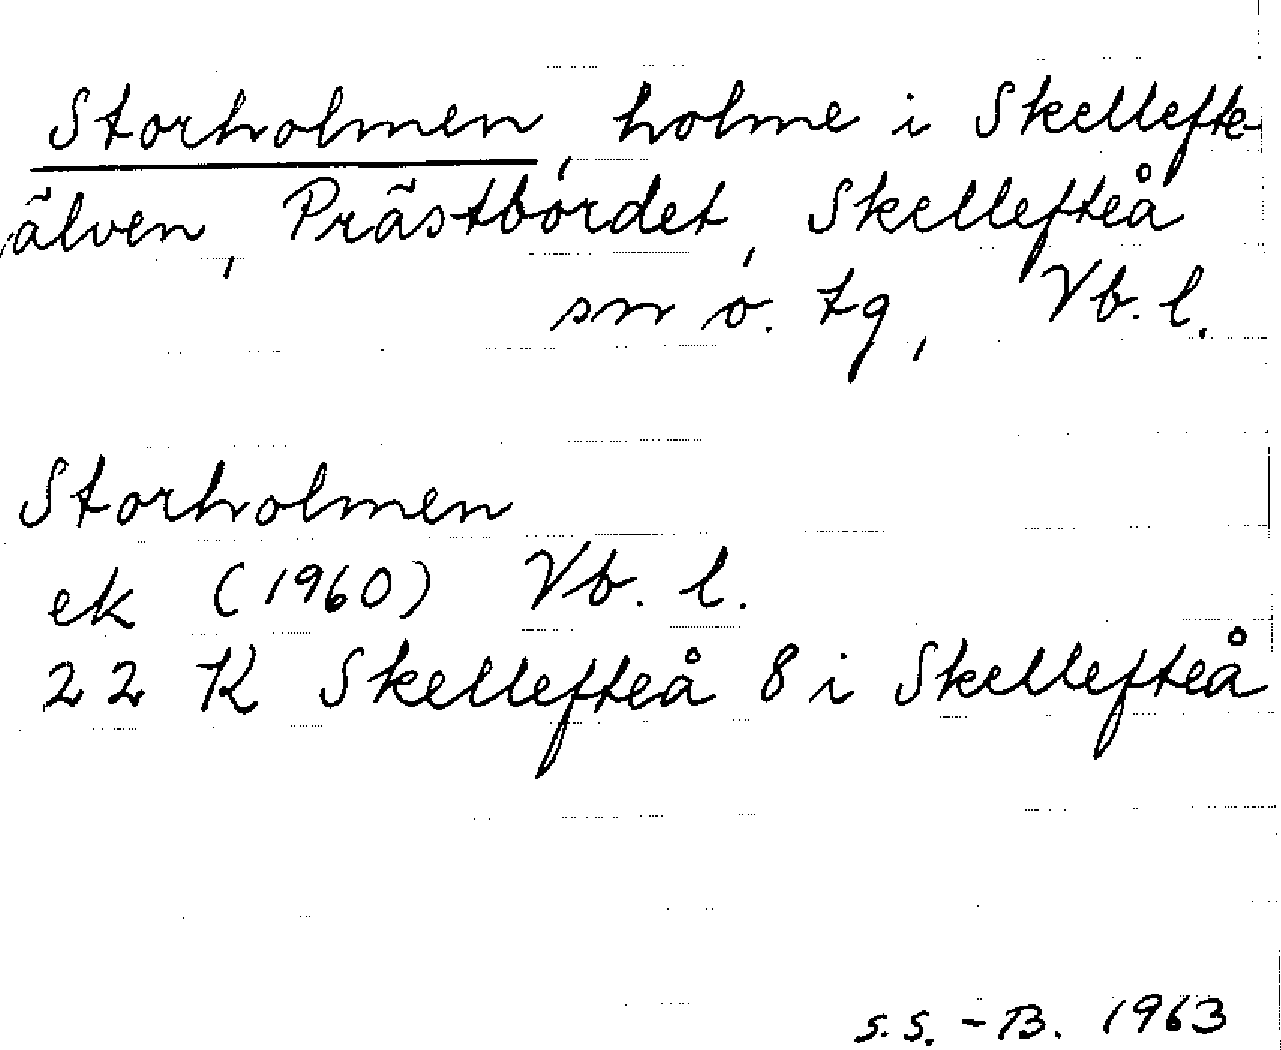 Storholmen, holme i Skellefte-
älven, Prästbordet, Skellefteå
sn o. tg, Vb. l.
Storholmen
ek (1960) Vb. l.
22 K Skellefteå 8 i Skellefteå
S.S.-B. 1963